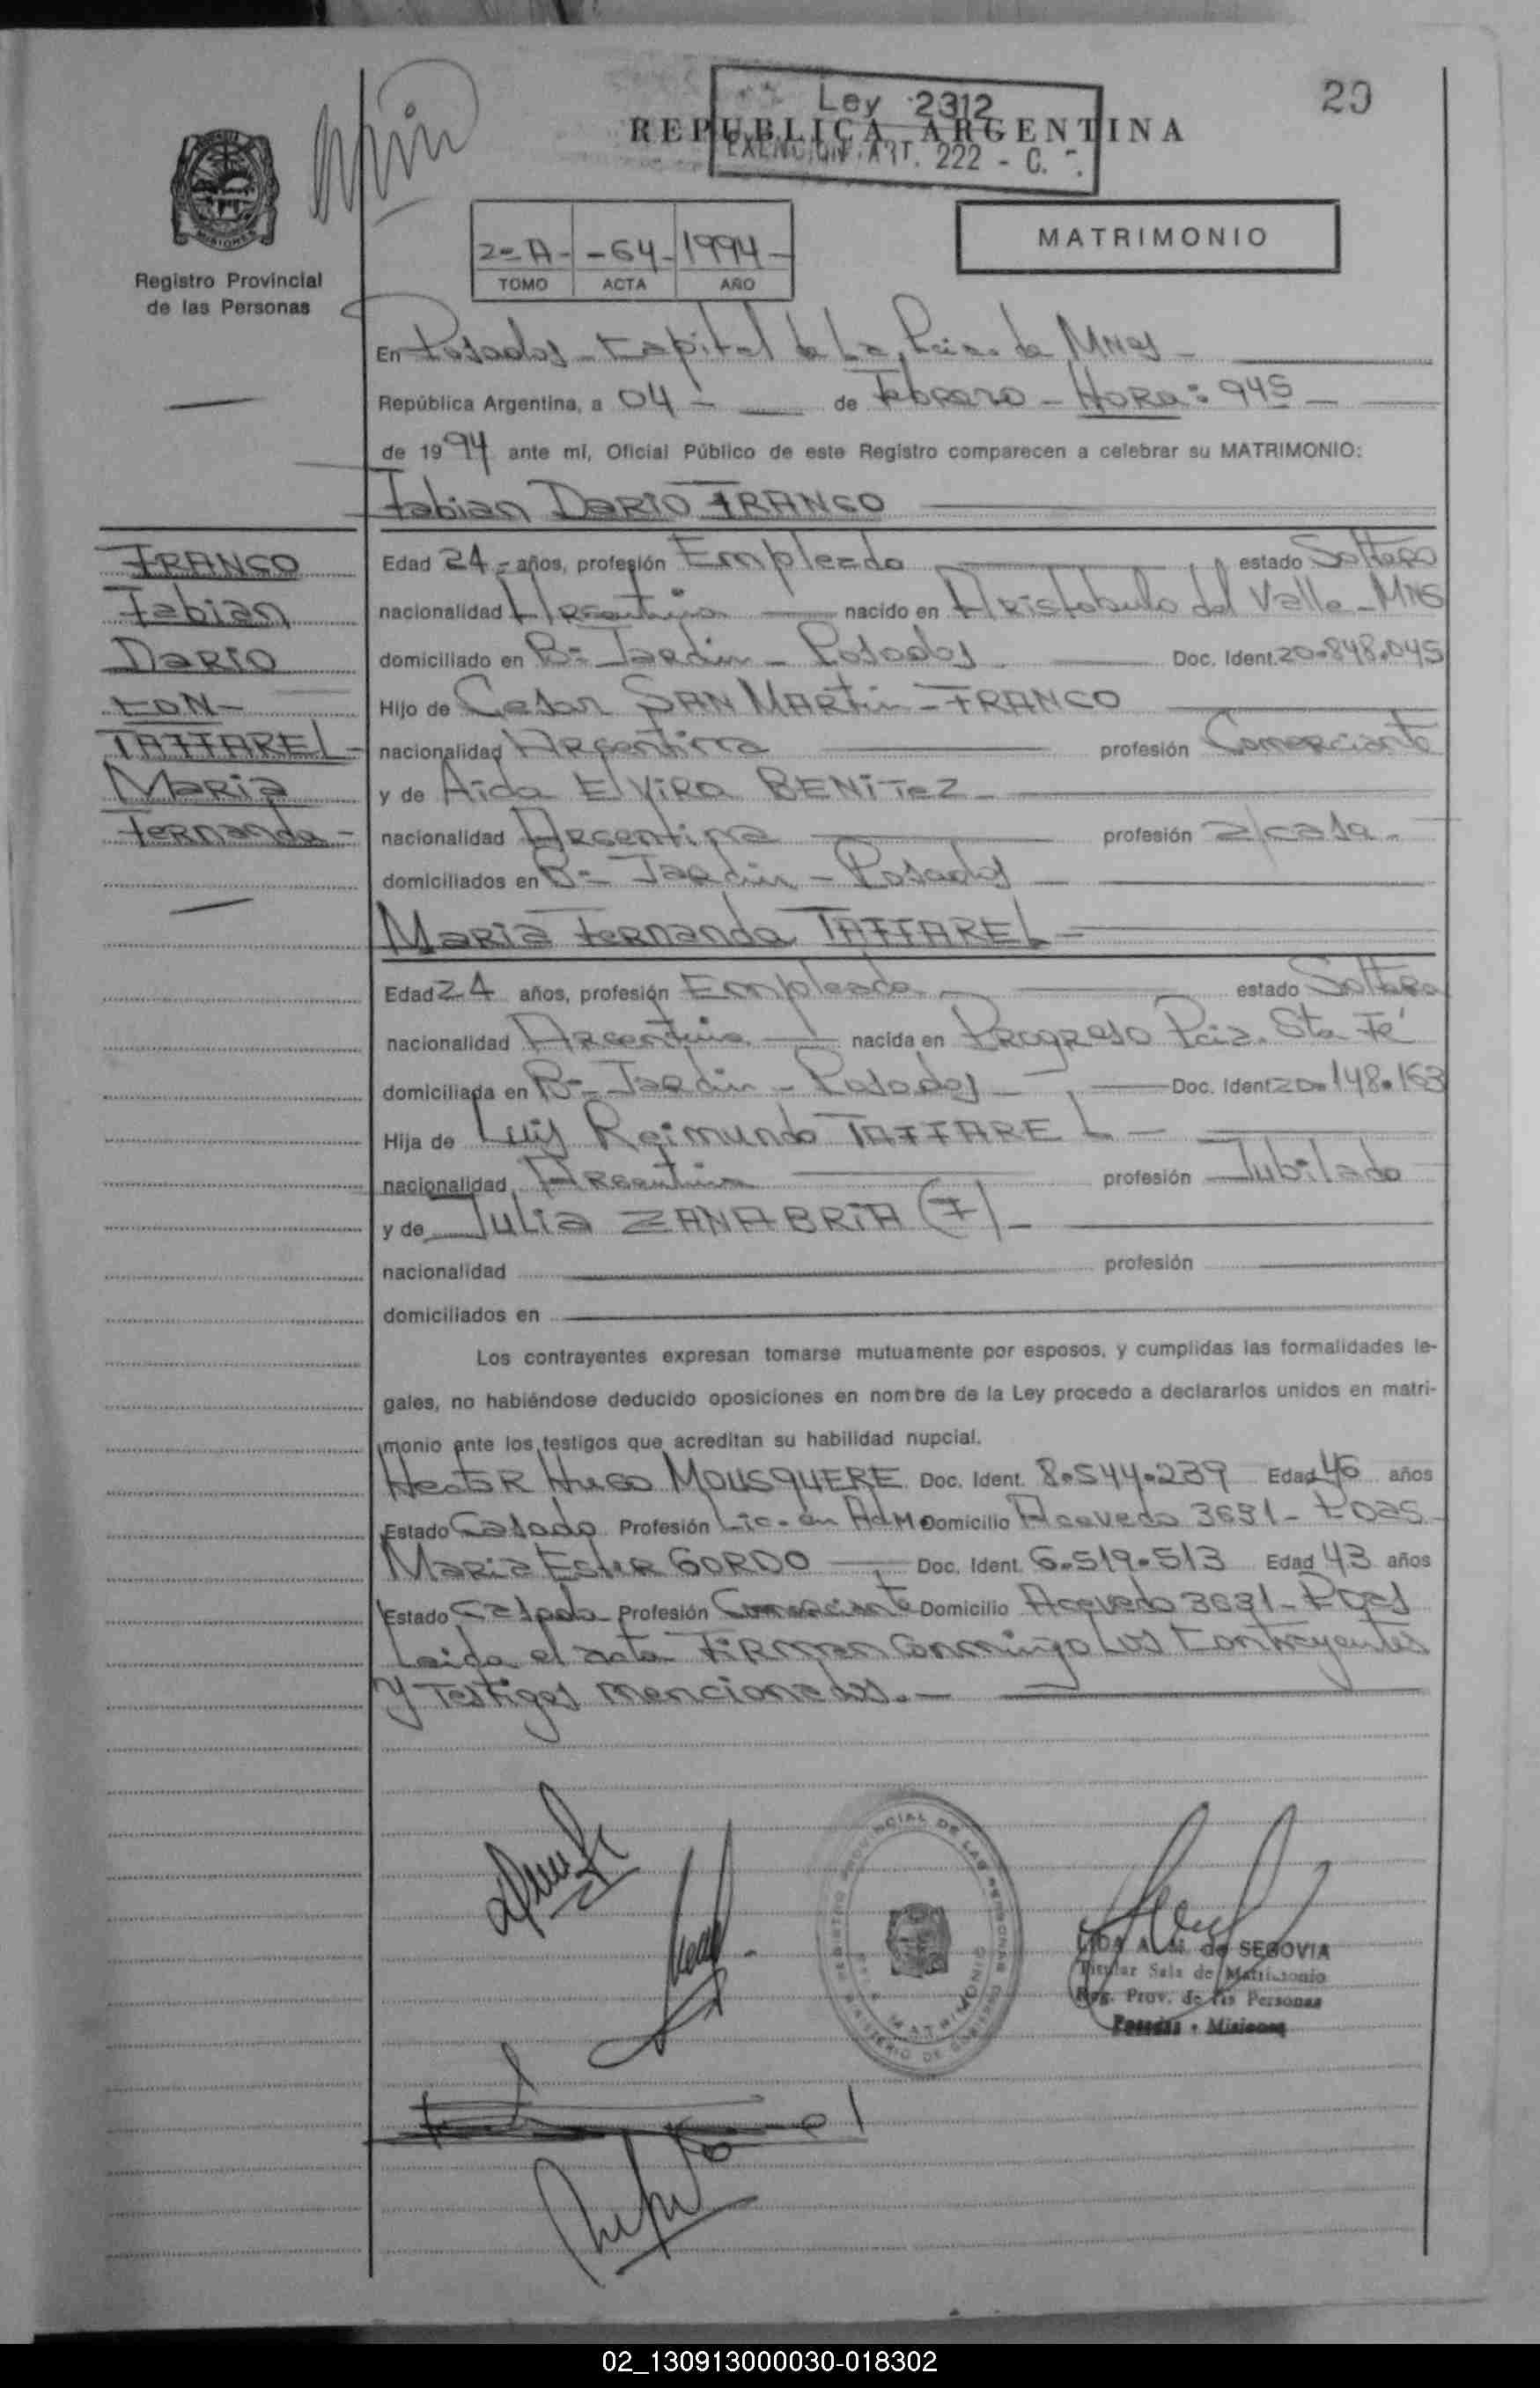 29
Ley 2312
REPUBLICA ARGENTINA
EXENCION ART. 222 - C.
MISIONES
Registro Provincial
de las Personas
2= A- -64- 1994-
TOMO ACTA AÑO
MATRIMONIO
En Posadas - Capital de La Pcia. de MNes -
República Argentina, a 04 - de Febrero - HORA: 945 -
de 1994 ante mí, Oficial Público de este Registro comparecen a celebrar su MATRIMONIO:
Fabian DARIO FRANCO
FRANCO
Fabian
DARIO
CON-
TAFFAREL-
MARIA
FERNANDA-
Edad 24- años, profesión Empleado estado Soltero
nacionalidad Argentina nacido en Aristobulo del Valle - MNS
domiciliado en B= Jardin - Posadas Doc. Ident. 20.848.045
Hijo de Cesar SAN MARTIN - FRANCO
nacionalidad Argentina profesión Comerciante
y de Aida ElViRA BENiTeZ -
nacionalidad Argentina profesión a/casa -
domiciliados en B= Jardin - Posadas
MARIA Fernanda TAFFAREL -
Edad 24 años, profesión Empleada - estado Soltera
nacionalidad Argentina nacida en Progreso Pcia. Sta Fé
domiciliada en B= Jardin - Posadas - Doc. Ident 20.148.163
Hija de Luis Raimundo TAFFAREL -
nacionalidad Argentina profesión Jubilado
y de Julia ZANABRIA (F) -
nacionalidad profesión
domiciliados en
Los contrayentes expresan tomarse mutuamente por esposos, y cumplidas las formalidades le-
gales, no habiéndose deducido oposiciones en nombre de la Ley procedo a declararlos unidos en matri-
monio ante los testigos que acreditan su habilidad nupcial.
Hector Hugo MOUSQUERE Doc. Ident. 8.544.239 Edad 46 años
Estado Casado Profesión Lic. en AdM. Domicilio Acevedo 3631 - Pdas
Maria Ester GORDO Doc. Ident. 6.519.513 Edad 43 años
Estado Casada Profesión Comerciante Domicilio Acevedo 3631 - Pdas
Leida el acta Firman Conmigo Los Contrayentes
Y Testigos mencionados. -
REGISTRO PROVINCIAL DE LAS PERSONAS
MATRIMONIO
MINISTERIO DE GOBIERNO
LIDA A. M. de SEGOVIA
Titular Sala de Matrimonio
Reg. Prov. de las Personas
Posadas - Misiones
02_130913000030-018302